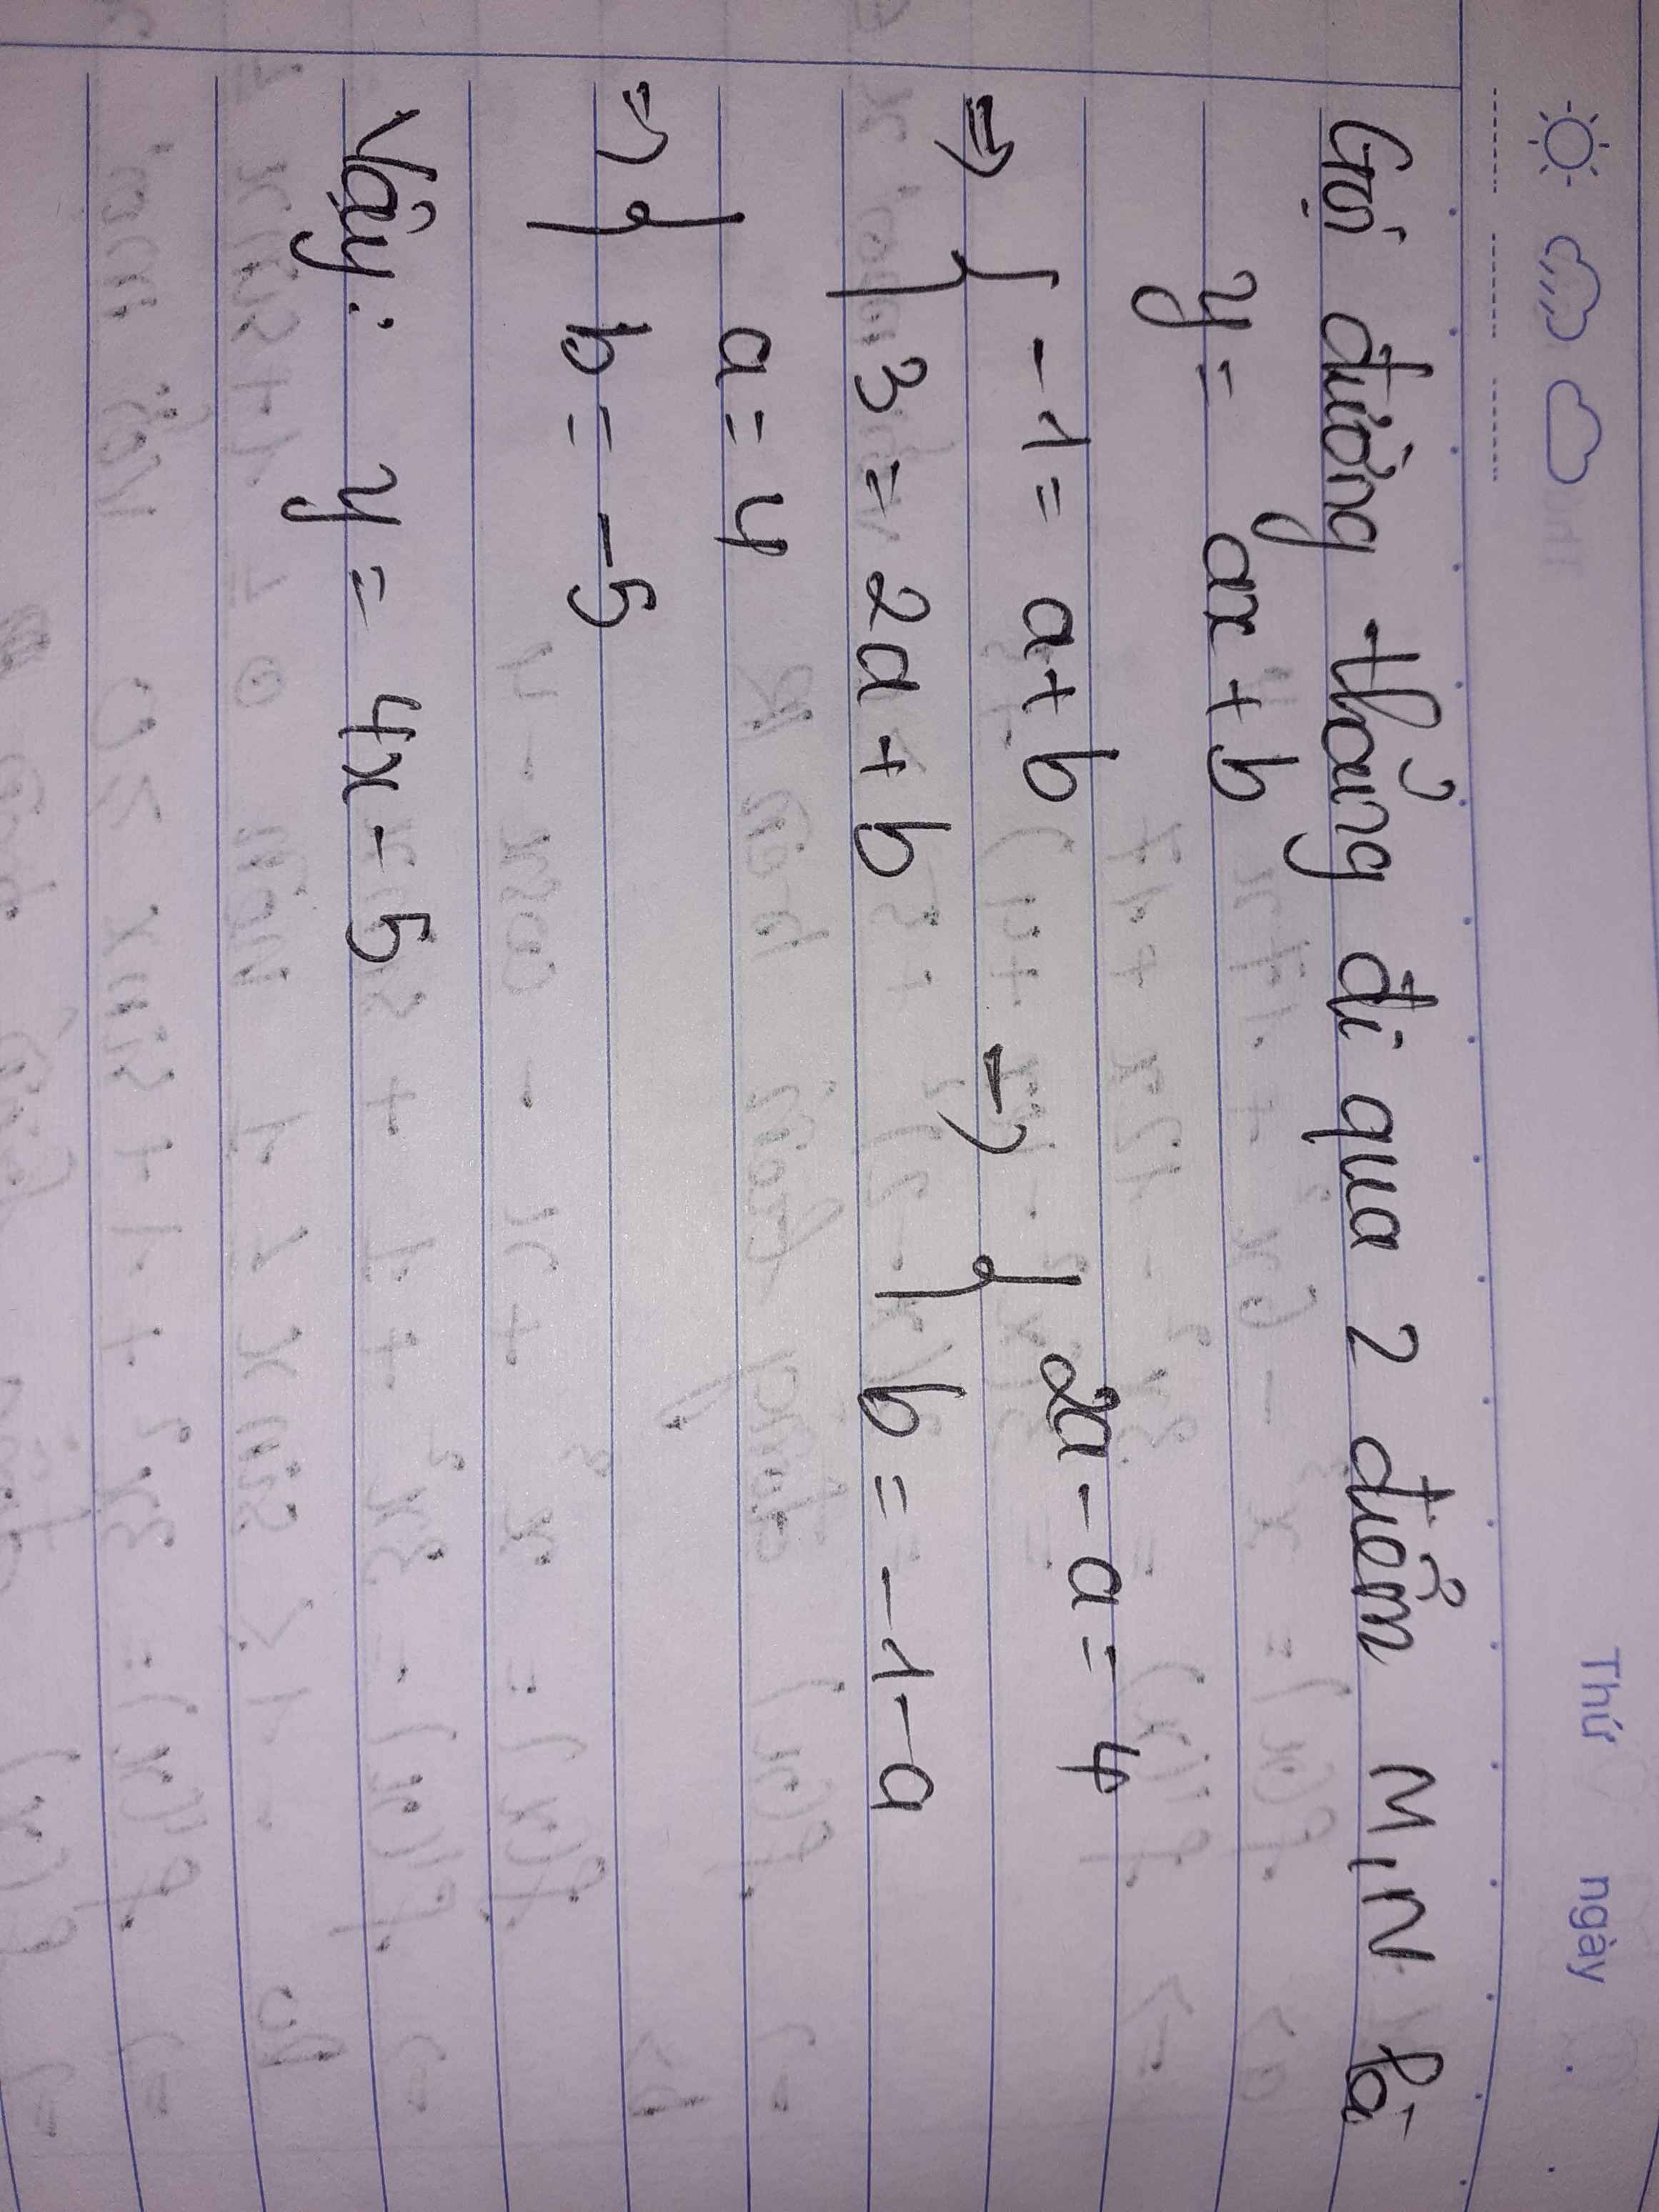 Thứ ngày
Gọi đường thẳng đi qua 2 điểm M, N là
y = ax + b
=> { -1 = a + b
3 = 2a + b
=> { 2a - a = 4
b = -1 - a
=> { a = 4
b = -5
Vậy: y = 4x - 5